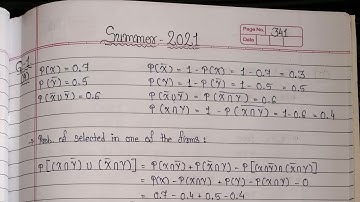 Summer - 2021
Page No. 341
Date
Q.1
P(X) = 0.7
P(X̄) = 1 - P(X) = 1 - 0.7 = 0.3
P(Ȳ) = 0.5
P(Y) = 1 - P(Ȳ) = 1 - 0.5 = 0.5
P(X̄∪Ȳ) = 0.6
P(X̄∪Ȳ) = P(X̄∩Y) = 0.6
P(X∩Y) = 1 - P(X∩Y) = 1 - 0.6 = 0.4
→ Prob. of selected in one of the firms :
P[(X∩Ȳ) ∪ (X̄∩Y)] = P(X∩Ȳ) + P(X̄∩Y) - P[(X∩Ȳ)∩(X̄∩Y)]
= P(X) - P(X∩Y) + P(Y) - P(X∩Y) - 0
= 0.7 - 0.4 + 0.5 - 0.4